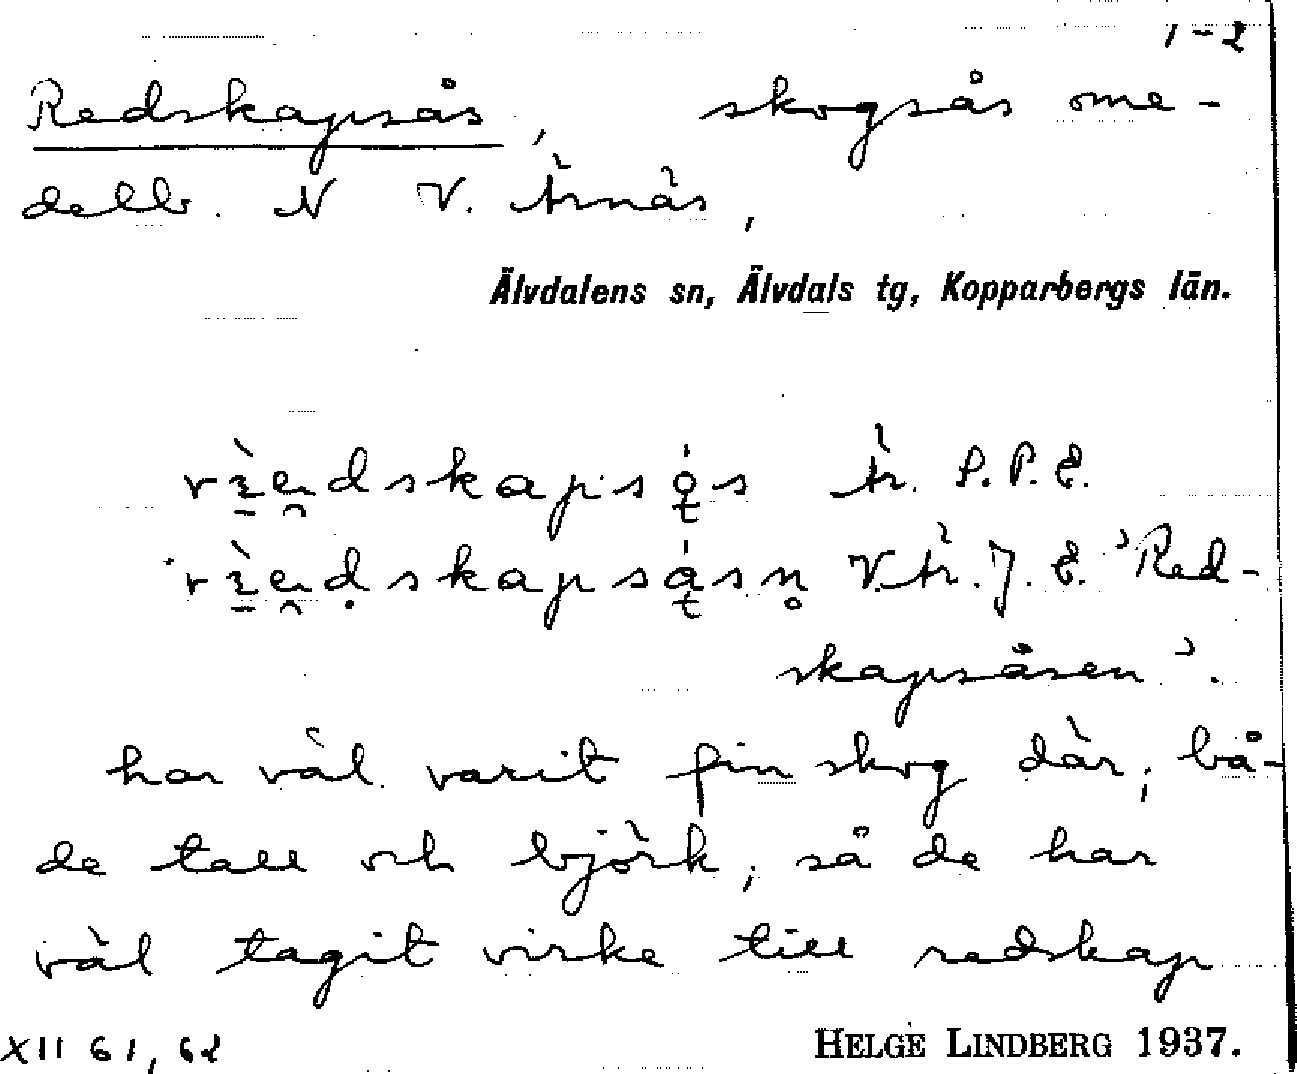 1-2
Redskapsås, skogsås ome-
delb. N V. Ärnäs,
Älvdalens sn, Älvdals tg, Kopparbergs län.
Är. P.P.E.
V.Är. J. E. 'Red-
skapsåsen'.
har väl varit fin skog där, bå-
de tall och björk, så de har
väl tagit virke till redskap
XII 61, 62
HELGE LINDBERG 1937.